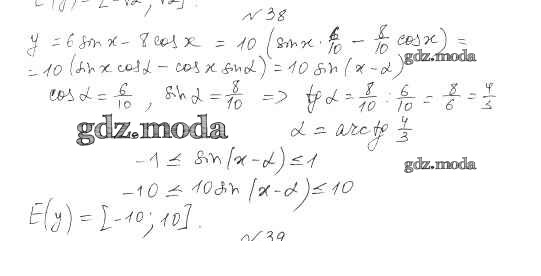 E(y) = [-√2; √2].
N 38
y = 6 sin x - 8 cos x = 10 (sin x · 6/10 - 8/10 cos x) =
= 10 (sin x cos α - cos x sin α) = 10 sin (x - α)
gdz.moda
cos α = 6/10 , sin α = 8/10 => tg α = 8/10 : 6/10 = 8/6 = 4/3
gdz.moda α = arctg 4/3
-1 ≤ sin (x - α) ≤ 1
gdz.moda
-10 ≤ 10 sin (x - α) ≤ 10
E(y) = [-10; 10].
N 39